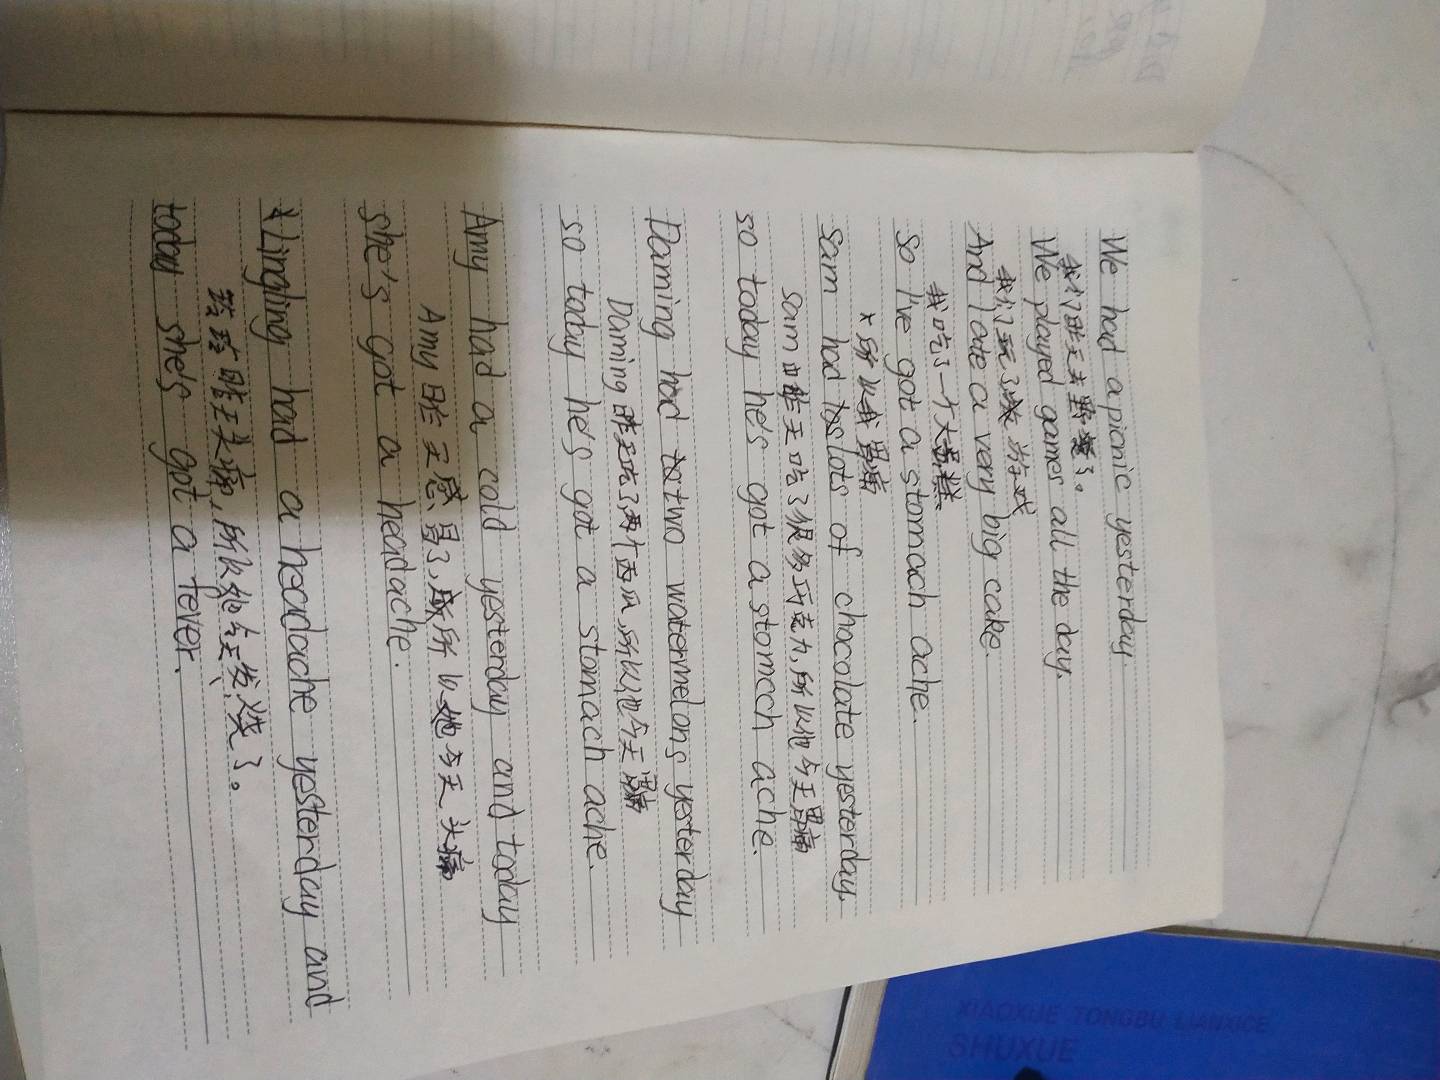 We had a picnic yesterday
我们昨天去野餐了。
We played games all the day.
我们玩了游戏
And I ate a very big cake.
我吃了一个大蛋糕
So I've got a stomach ache.
所以我胃痛
Sam had lots of chocolate yesterday.
Sam昨天吃了很多巧克力,所以他今天胃痛
so today he's got a stomach ache.
Daming had two watermelons yesterday
Daming昨天吃了两个西瓜,所以他今天胃痛
so today he's got a stomach ache.
Amy had a cold yesterday and today
Amy昨天感冒了,所以她今天头痛
she's got a headache.
Lingling had a headache yesterday and
玲玲昨天头痛,所以她今天发烧了。
today she's got a fever.
XIAOXUE TONGBU LIANXICE
SHUXUE